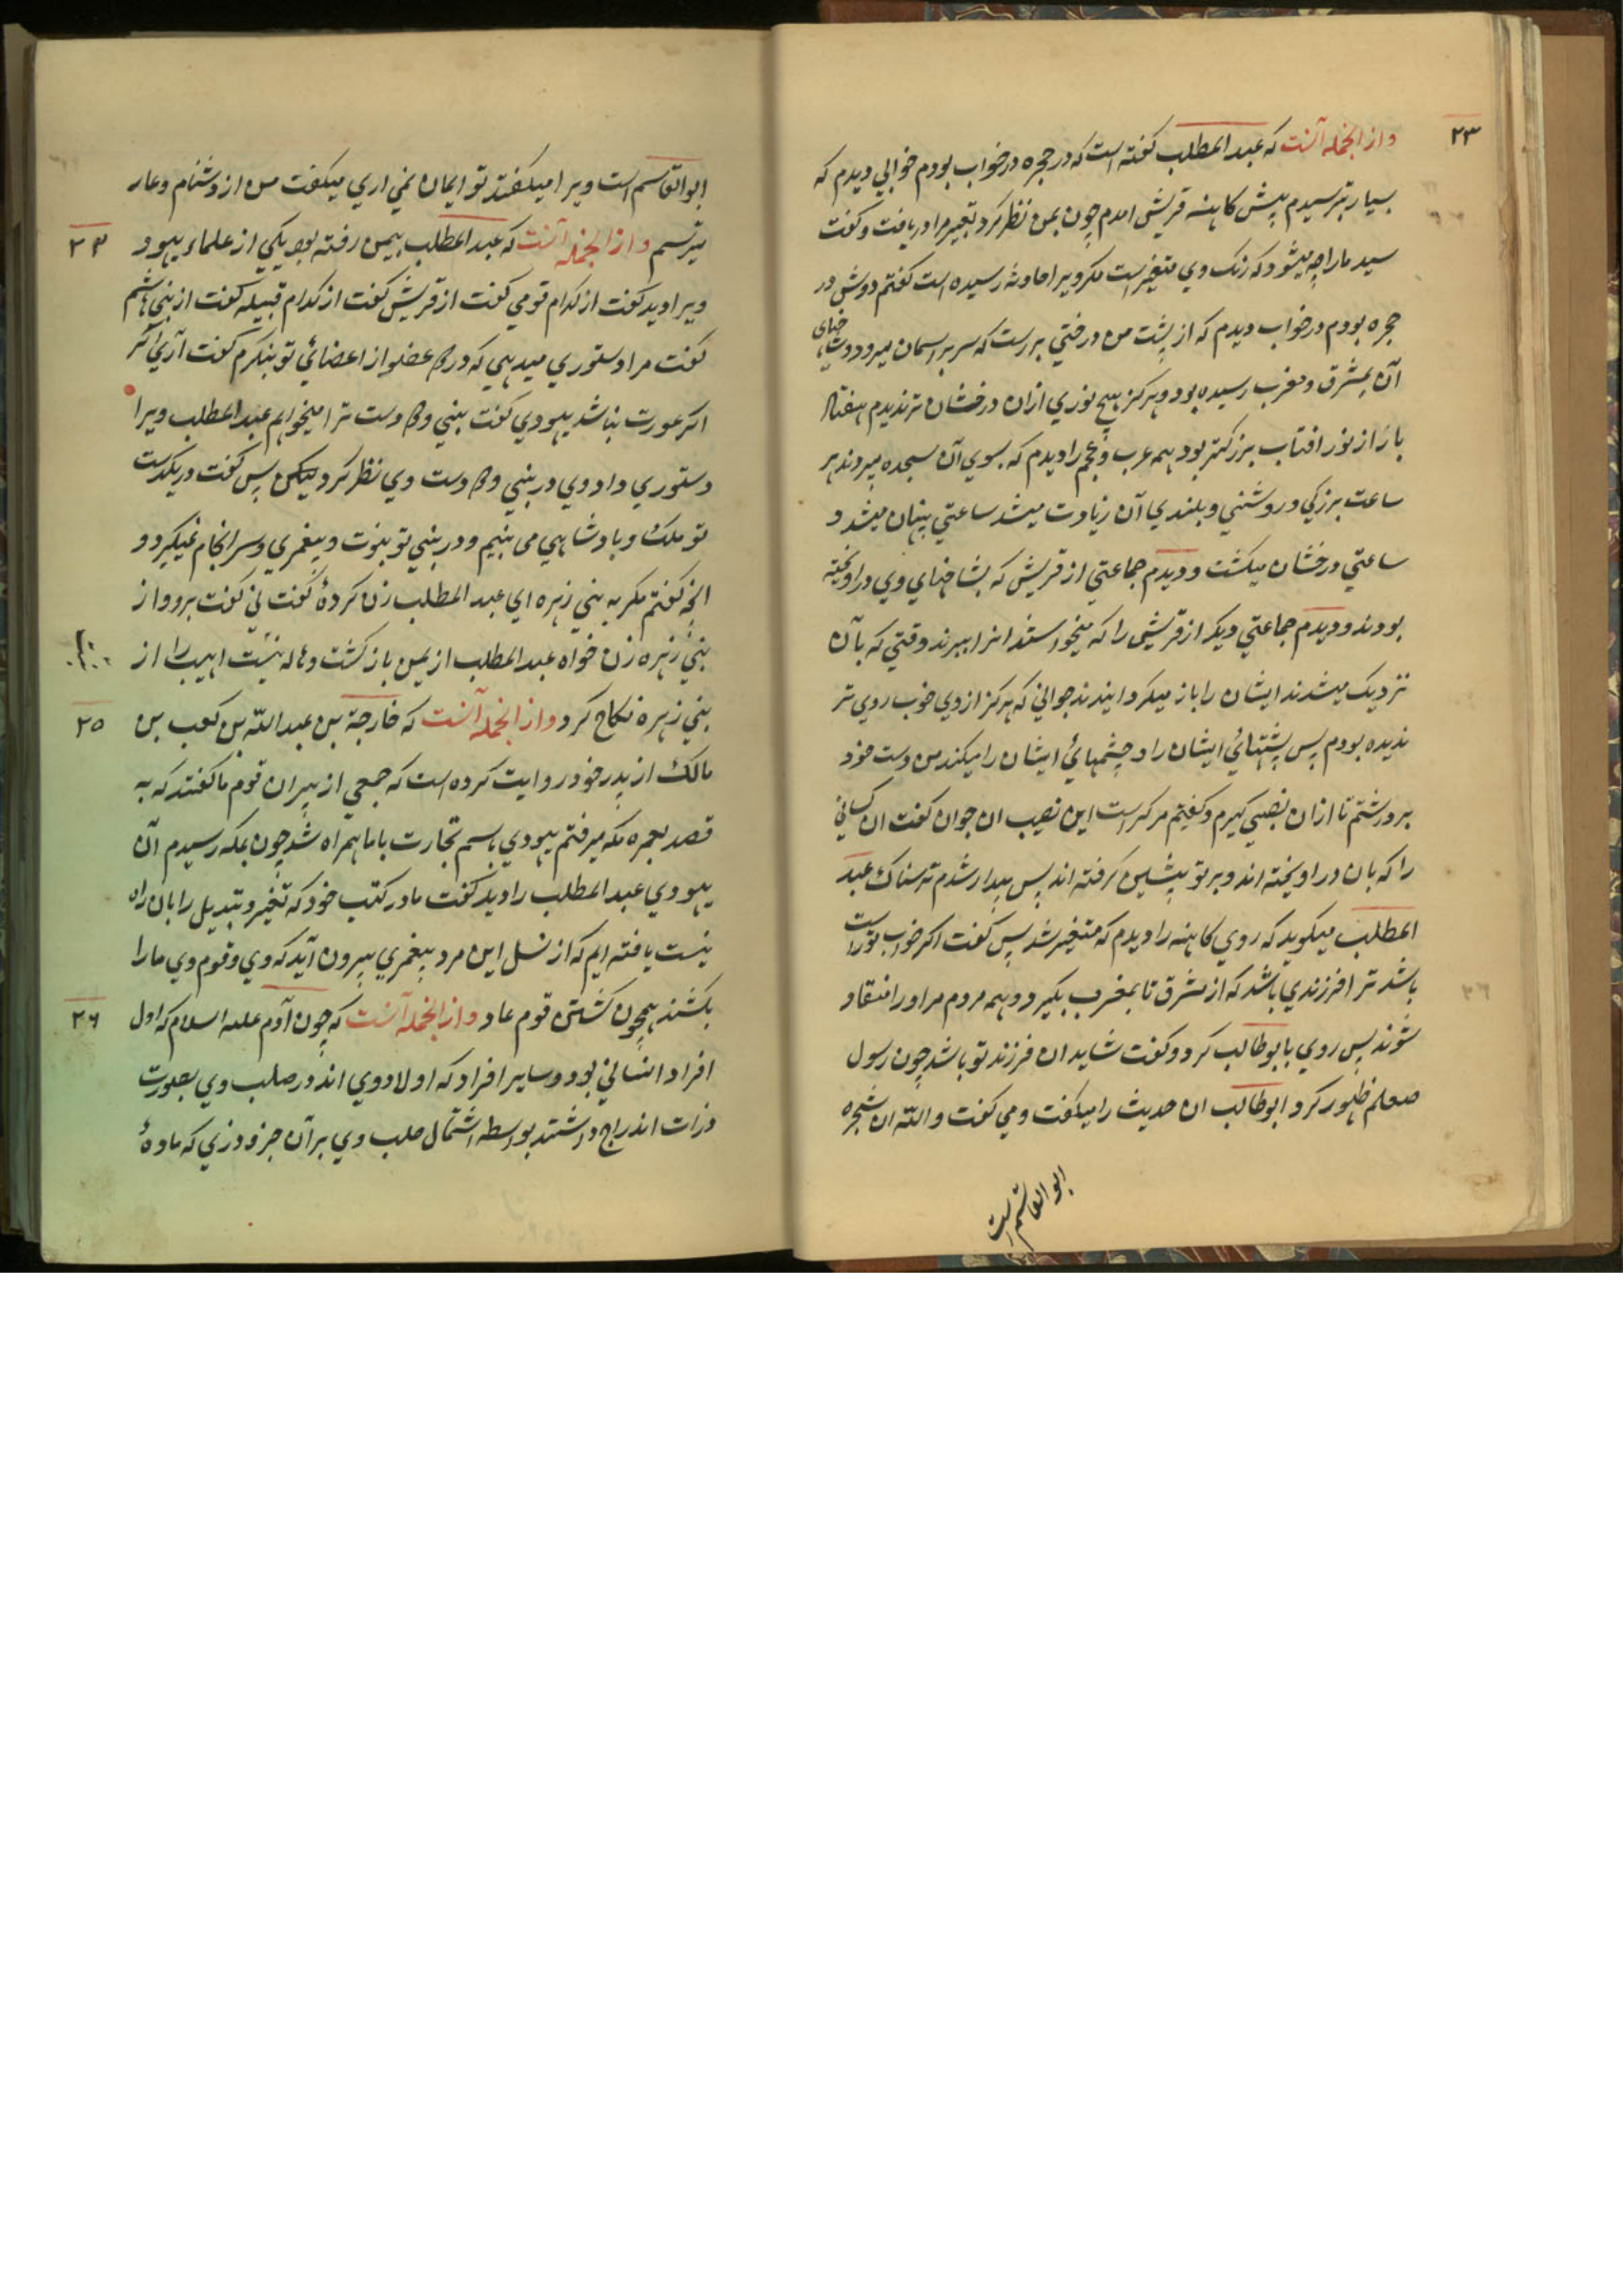 ۲۳
و از آنجمله آنست که عبد المطلب گفته است که در حجره در خواب بودم خوابی دیدم که
بسیار بترسیدم پیش کاهنه قریش امدم چون بمن نظر کرد تعبیر مرا دریافت و گفت
سید ما را چه میشود که رنک وی متغیر است مکر ویرا حادثه رسیده است گفتم دوش در
حجره بودم در خواب دیدم که از پشت من درختی بررست که سر بر اسمان میرود و شاخهای
آن بمشرق و مغرب رسیده بود و هرکز هیچ نوری ازان درخشان تر ندیدم هفتاد
بار از نور افتاب بزرکتر بود همه عرب و عجم را دیدم که بسوی آن سجده میبردند هر
ساعت بزرکی و روشنی و بلندی آن زیادت میشد ساعتی پنهان میشد و
ساعتی درخشان میکشت و دیدم جماعتی از قریش که بشاخهای وی دراویخته
بودند و دیدم جماعتی دیکر از قریش را که میخواستند انرا ببرند وقتی که بآن
نزدیک میشدند ایشان را باز میکردانیدند جوانی که هرکز از وی خوب روی تر
ندیده بودم پس پشتهائ ایشان را و چشمهائ ایشان را میکند من دست خود
برداشتم تا ازان نصیبی کیرم و گفتم مرکراست این نصیب ان جوان گفت ان کسانی
را که بان دراویخته اند و بر تو پیشین کرفته اند پس بیدار شدم ترسناک عبد
المطلب میکوید که روی کاهنه را دیدم که متغیر شد پس گفت اکر خواب تو راست
باشد ترا فرزندی باشد که از مشرق تا بمغرب بکیرد و همه مردم مر او را منقاد
شوند پس روی بابوطالب کرد و گفت شاید ان فرزند تو باشد چون رسول
صعلم ظهور کرد ابوطالب ان حدیث را میگفت و می گفت والله ان شجره
ابو القاسم است
ابوالقاسم است ویرا میگفتند تو ایمان نمی اری میگفت من از دشنام و عار
میترسم و از آنجمله آنست که عبد المطلب بیمن رفته بود یکی از علماء یهود
۲۴
ویرا دید گفت از کدام قومی گفت از قریش گفت از کدام قبیله گفت از بنی هاشم
گفت مرا دستوری میدهی که در دو عضو از اعضائ تو بنکرم گفت آری اکر
اکر عورت نباشد یهودی گفت بینی و دو دست ترا میخواهم عبد المطلب ویرا
دستوری داد وی در بینی و دو دست وی نظر کرد پس گفت در یکدست
تو ملک و بادشاهی می بینیم و در بینی تو نبوت و پیغمبری و سرانجام نمیکیرد و
الخ گفتم مکر به بنی زهره ای عبد المطلب زن کردۀ گفت نی گفت برو و از
بنی زهره زن خواه عبد المطلب از یمن باز کشت و هاله بنت اهیب را از
بنی زهره نکاح کرد و از آنجمله آنست که خارجة بن عبد الله بن کعب بن
۲۵
مالک از پدر خود روایت کرده است که جمعی از پیران قوم ما گفتند که به
قصد بعمره مکه میرفتم یهودی باسم تجارت با ما همراه شد چون بمکه رسیدم آن
یهودی عبد المطلب را دید گفت ما در کتب خود که تغیر و تبدیل را بان راه
نیست یافته ایم که از نسل این مرد پیغمبری بیرون آید که وی و قوم وی ما را
بکشند همچون کشتن قوم عاد و از آنجمله آنست که چون آدم علیه السلام که اول
۲۶
افراد انسانی بود و سایر افراد که اولاد وی اند در صلب وی بصورت
ذرات اندراج داشتند بواسطه اشتمال صلب وی بر آن جزو ذری که مادۀ